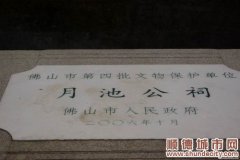 佛山市第四批文物保护单位
月池公祠
佛山市人民政府
二〇〇六年十月
顺德城市网
www.shundecity.com